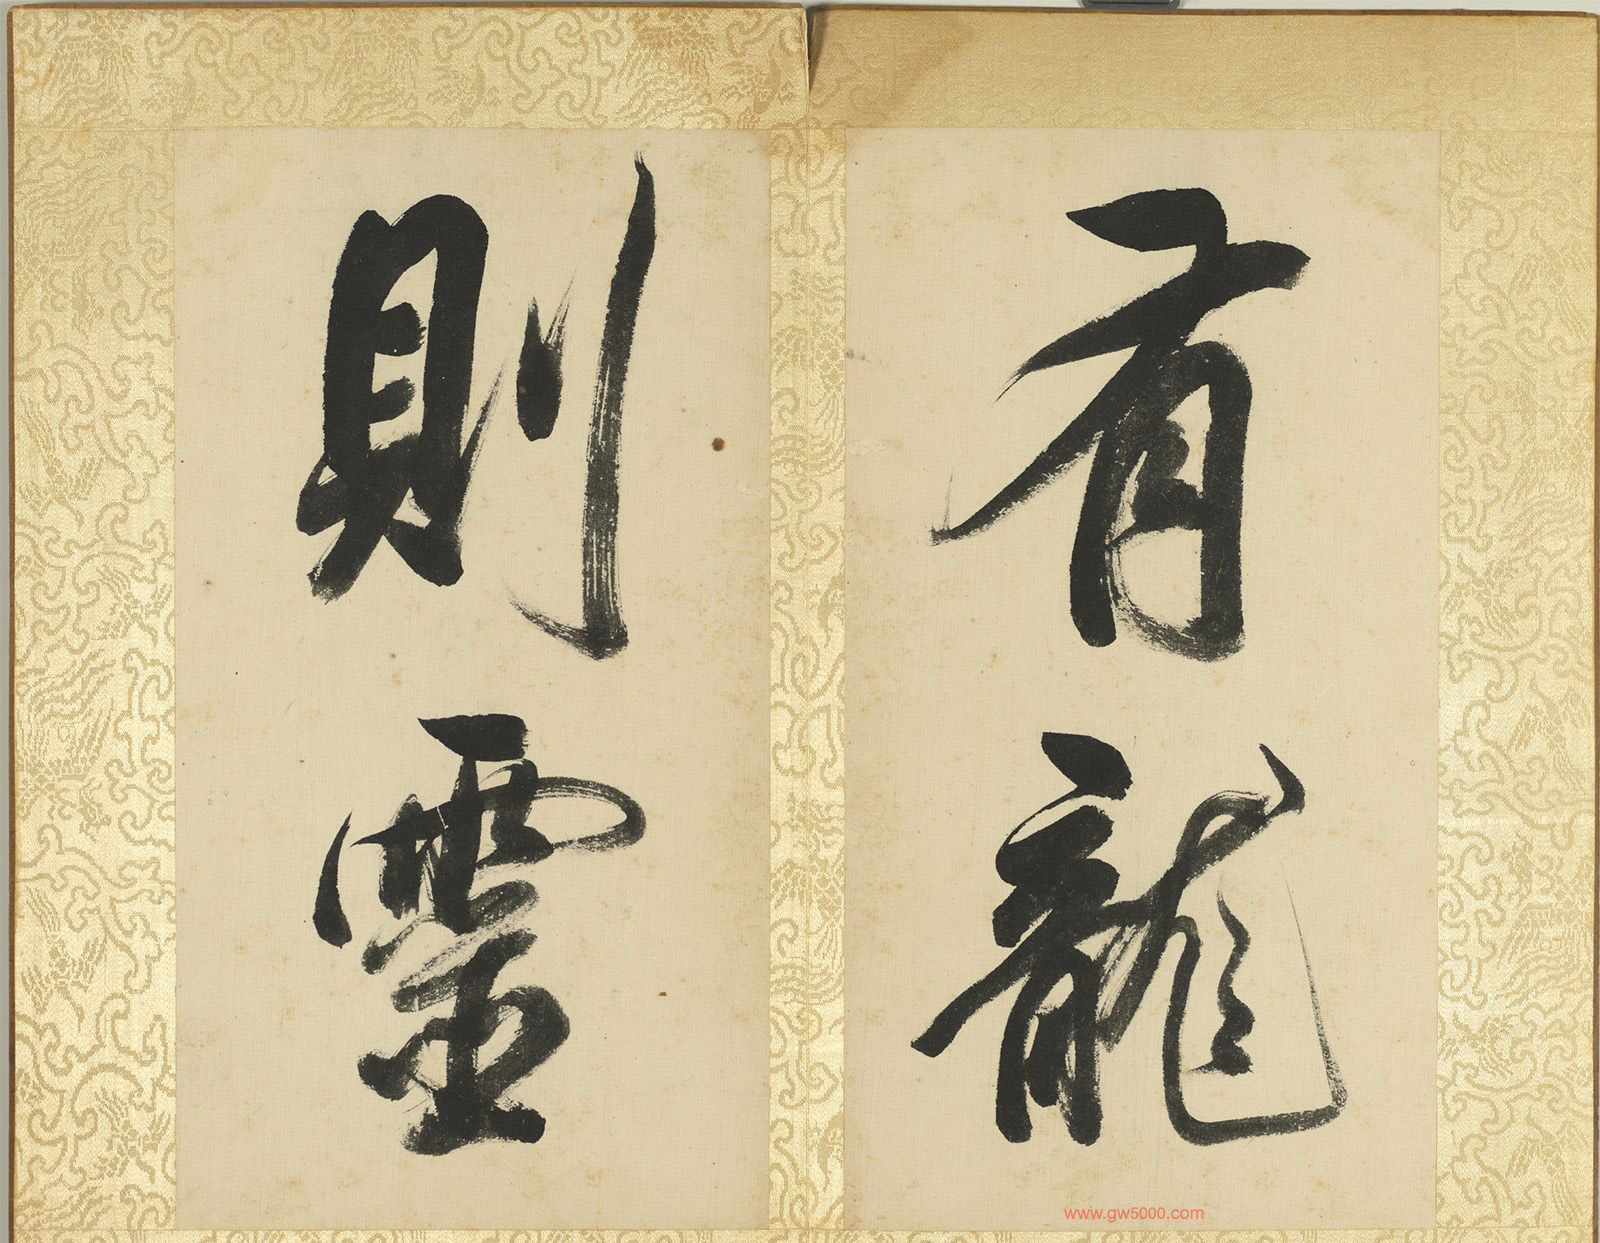 有龍
則靈
www.gw5000.com